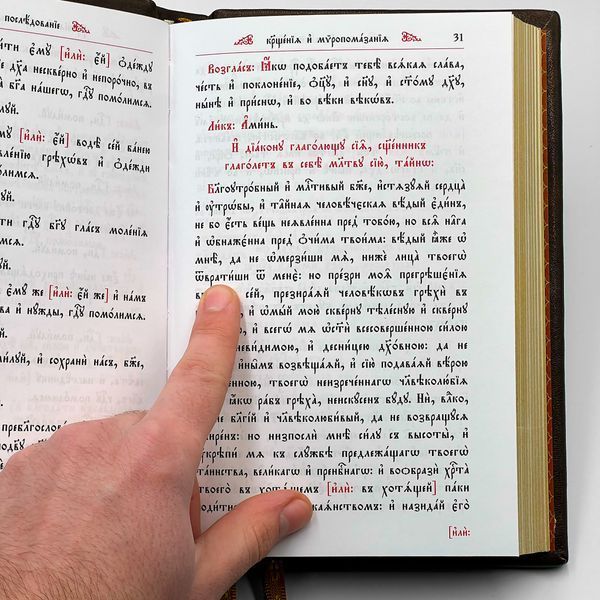 послѣдованіе
йти є҆мꙋ̀ [и҆лѝ: є҆́й] ѻ҆де́ждꙋ
дх҃а нескве́рно и҆ непоро́чно, въ
бг҃а на́шегѡ, гдⷭ҇ꙋ помо́лимсѧ.
[и҆лѝ: є҆́й] водѣ̀ се́й ба́нею
грѣхѡ́въ и҆ ѻ҆де́жди
гдⷭ҇ꙋ бг҃ꙋ гла́съ моле́нїѧ
є҆мꙋ́ же [и҆лѝ: є҆́й же] и҆ на́мъ
и҆ нꙋ́жды, гдⷭ҇ꙋ помо́лимсѧ.
и҆ сохранѝ на́съ, бж҃е,
крⷭ҇ще́нїѧ и҆ мѵ́ропома́занїѧ 31
Возгла́съ: Ꙗ҆́кѡ подоба́етъ тебѣ̀ всѧ́каѧ сла́ва,
че́сть и҆ поклоне́нїе, ѻ҆ц҃ꙋ̀, и҆ сн҃ꙋ, и҆ ст҃о́мꙋ дх҃ꙋ,
ны́нѣ и҆ при́снѡ, и҆ во вѣ́ки вѣкѡ́въ.
Ли́къ: А҆ми́нь.
И҆ дїа́конꙋ глаго́лющꙋ сїѧ̑, сщ҃е́нникъ
глаго́летъ въ себѣ̀ мл҃твꙋ сїю̀, та́йнѡ:
Благоꙋтро́бный и҆ млⷭ҇тивый бж҃е, и҆стѧзꙋ́ѧй сердца̀
и҆ ᲂу҆трѡ́бы, и҆ та̑йнаѧ человѣ́чєскаѧ вѣ́дый є҆ди́нъ,
не бо є҆́сть ве́щь неѧвле́нна пред̾ тобо́ю, но всѧ̑ на̑га
и҆ ѡ҆бнажє́нна пред̾ ѻ҆чи́ма твои́ма: вѣ́дый ꙗ҆̀же ѡ҆
мнѣ̀, да не ѡ҆мерзи́ши мѧ̀, нижѐ лица̀ твоегѡ̀
ѿврати́ши ѿ менє̀: но пре́зри моѧ̑ прегрѣшє́нїѧ
се́й, презира́ѧй человѣ́кѡвъ грѣхѝ въ
и҆ ѡ҆мы́й мою̀ скве́рнꙋ тѣле́снꙋю и҆ скве́рнꙋ
и҆ всего́ мѧ ѡ҆ст҃ѝ всесоверше́нною си́лою
неви́димою, и҆ десни́цею дх҃о́вною: да не
и҆ны̑мъ возвѣща́ѧй, и҆ сїю̀ подава́ѧй вѣ́рою
твоегѡ̀ неизрече́ннагѡ чл҃вѣколю́бїѧ
ꙗ҆́кѡ ра́бъ грѣха̀, неискꙋ́сенъ бꙋ́дꙋ. Нѝ, влⷣко,
бл҃гі́й и҆ чл҃вѣколюби́вый, да не возвращꙋ́сѧ
но низпослѝ мнѣ̀ си́лꙋ съ высоты̀, и҆
ᲂу҆крѣпи́ мѧ къ слꙋ́жбѣ предлежа́щагѡ твоегѡ̀
та́инства, вели́кагѡ и҆ пренбⷭ҇нагѡ: и҆ вообразѝ хрⷭ҇та̀
твоего̀ въ хотѧ́щемъ [и҆лѝ: въ хотѧ́щей] па́ки
и҆ назида́й є҆го̀
[и҆лѝ: